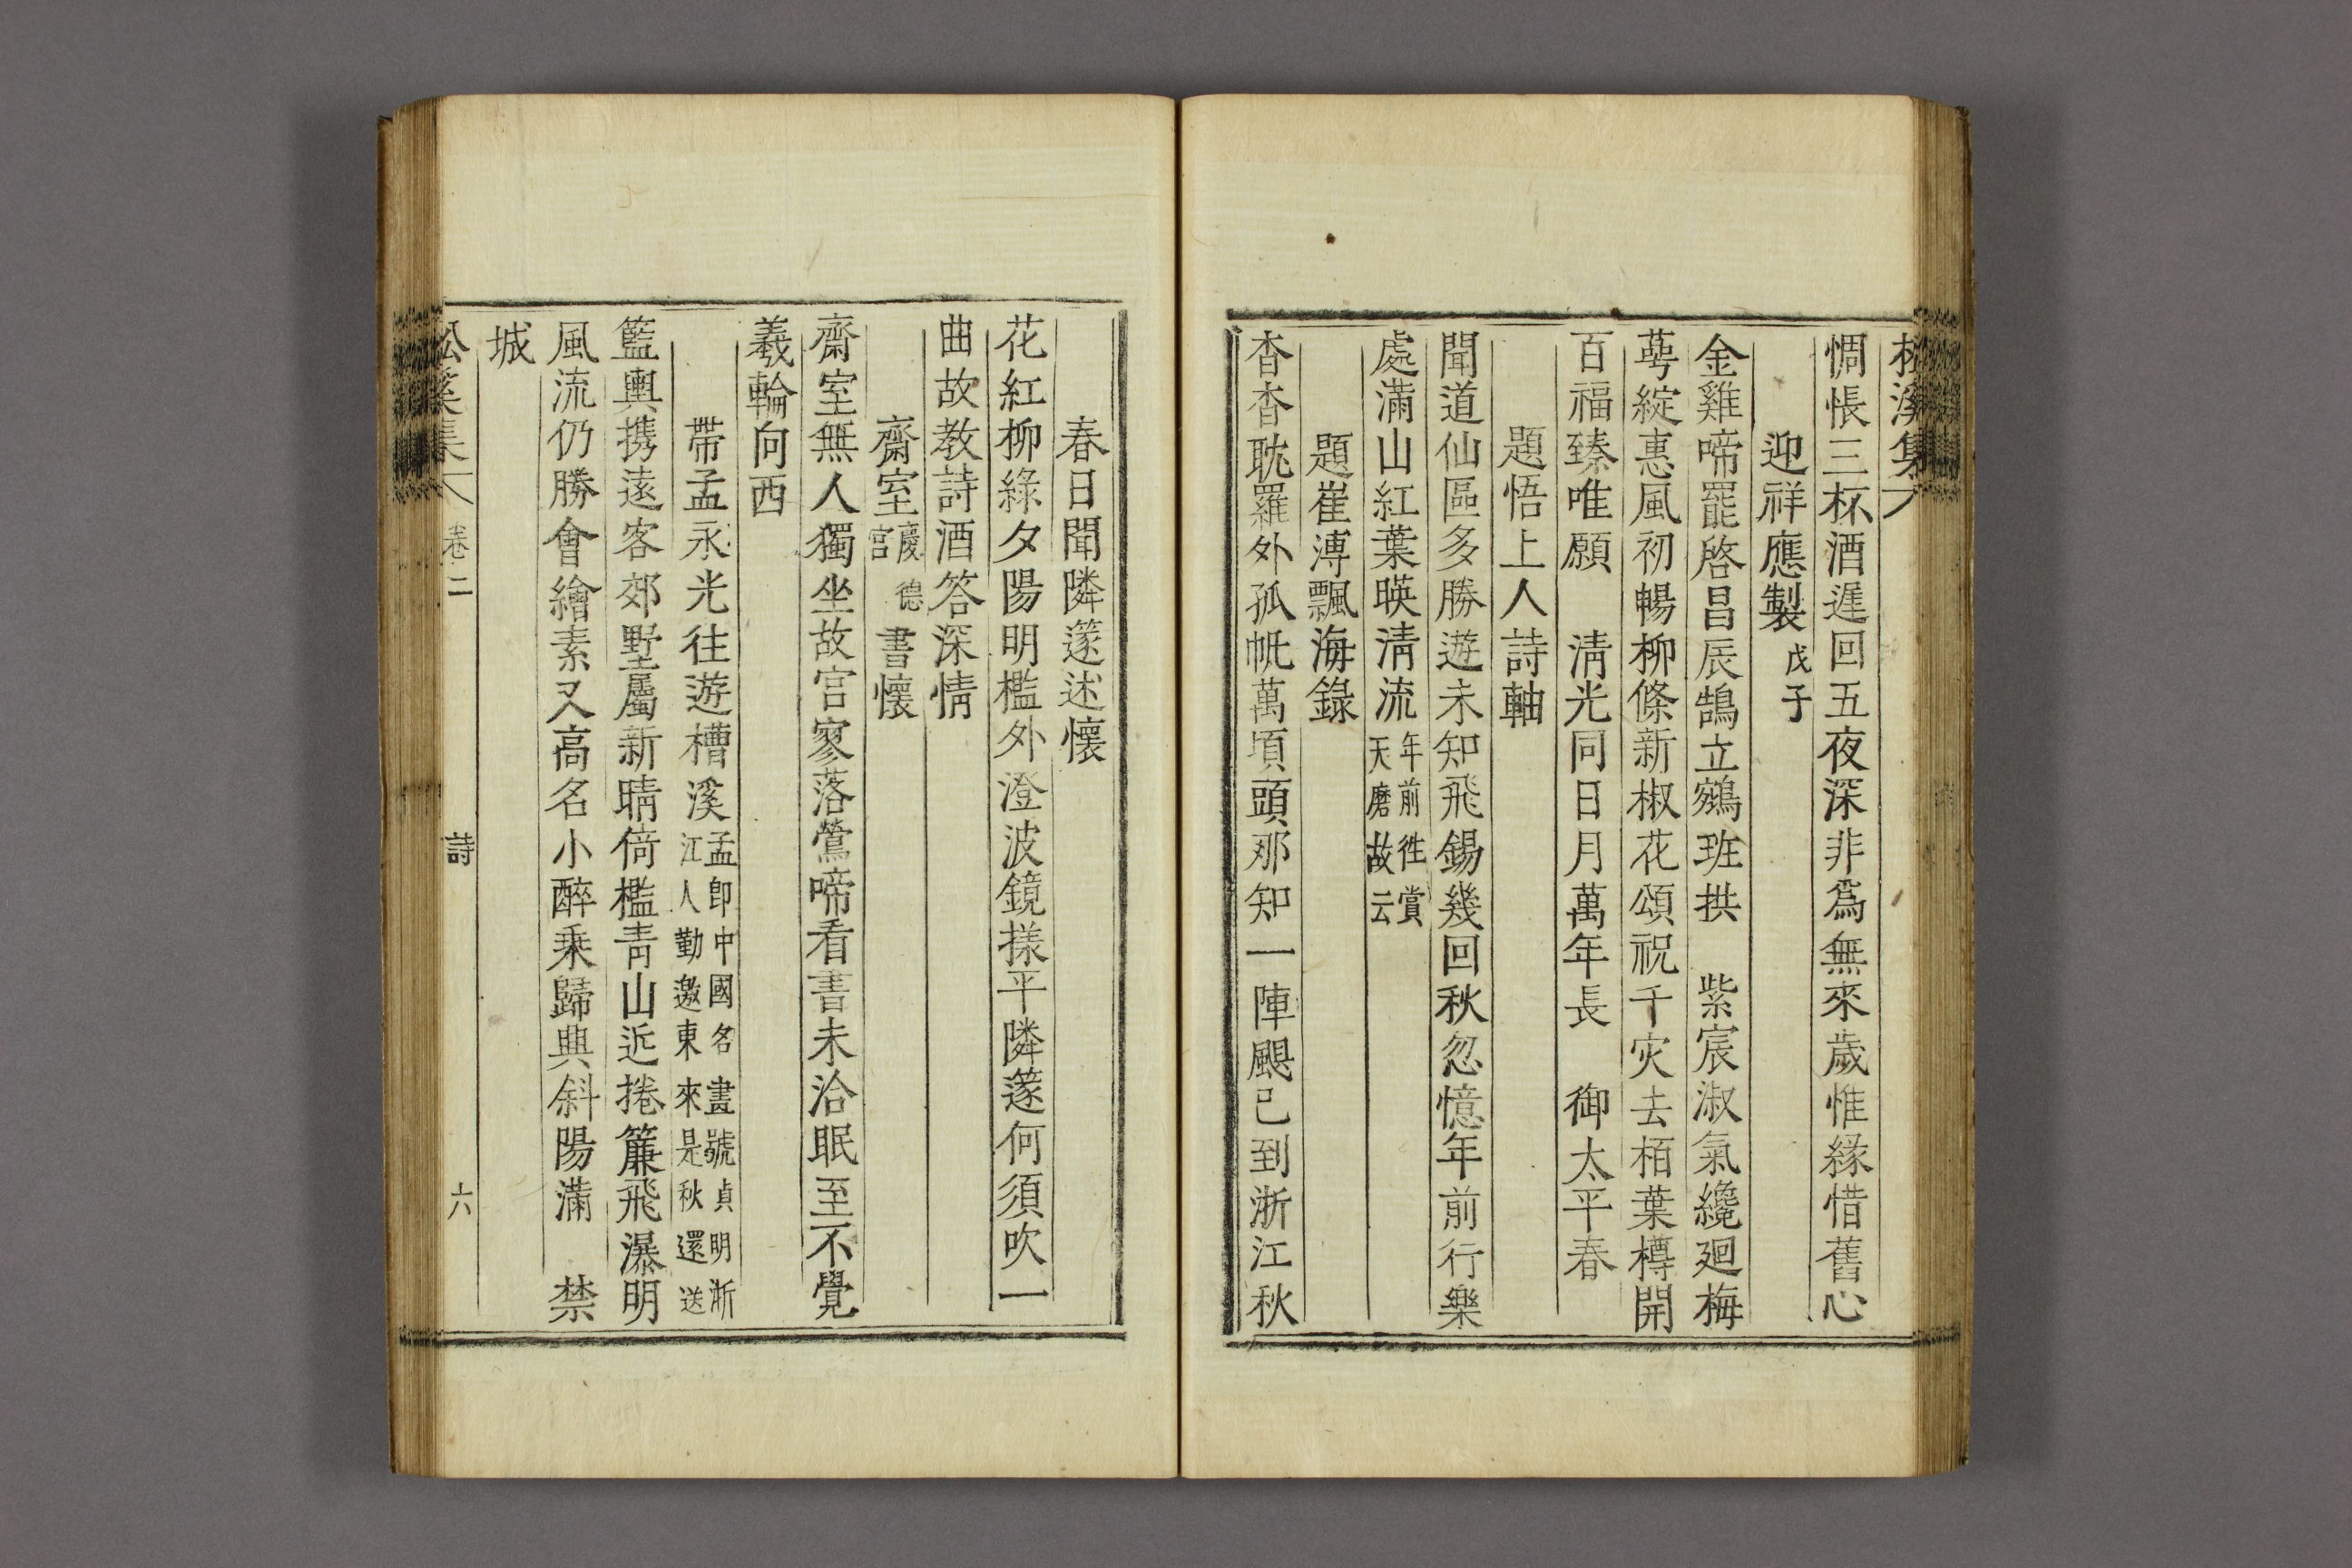 松溪集
惆悵三杯酒遲回五夜深非爲無來歲惟緣惜舊心
迎祥應製戊子
金雞啼罷啓昌辰鵠立鵷班拱 紫宸淑氣纔廻梅
萼綻惠風初暢柳條新椒花頌祝千灾去栢葉樽開
百福臻唯願 淸光同日月萬年長 御太平春
題悟上人詩軸
聞道仙區多勝遊未知飛錫幾回秋忽憶年前行樂
處滿山紅葉暎淸流年前徃賞
天磨故云
題崔溥飄海錄
杳杳耽羅外孤帆萬頃頭那知一陣颶已到浙江秋
春日聞隣篴述懷
花紅柳綠夕陽明檻外澄波鏡㨾平隣篴何須吹一
曲故教詩酒答深情
齋室慶德
宮書懷
齋室無人獨坐故宮寥落鶯啼看書未洽眠至不覺
羲輪向西
帶孟永光往遊槽溪孟卽中國名畫號貞明浙
江人勤邀東來是秋還送
籃輿携遠客郊墅屬新晴倚檻靑山近捲簾飛瀑明
風流仍勝會繪素又高名小醉乘歸興斜陽滿 禁
城
松溪集 卷二 詩 六